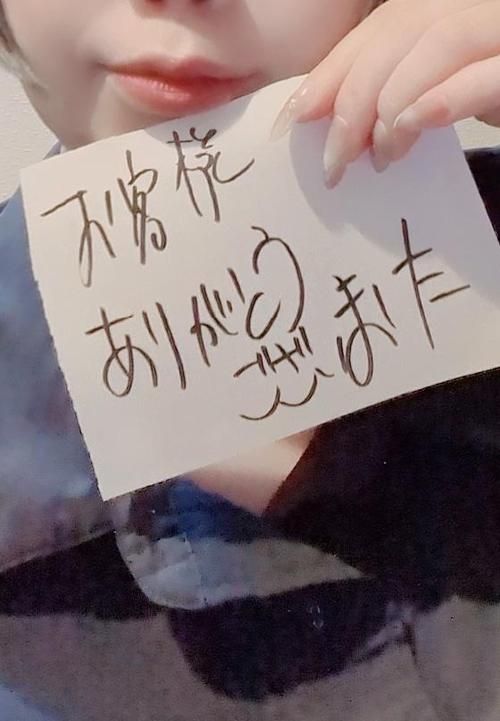 お客様
ありがとうございました